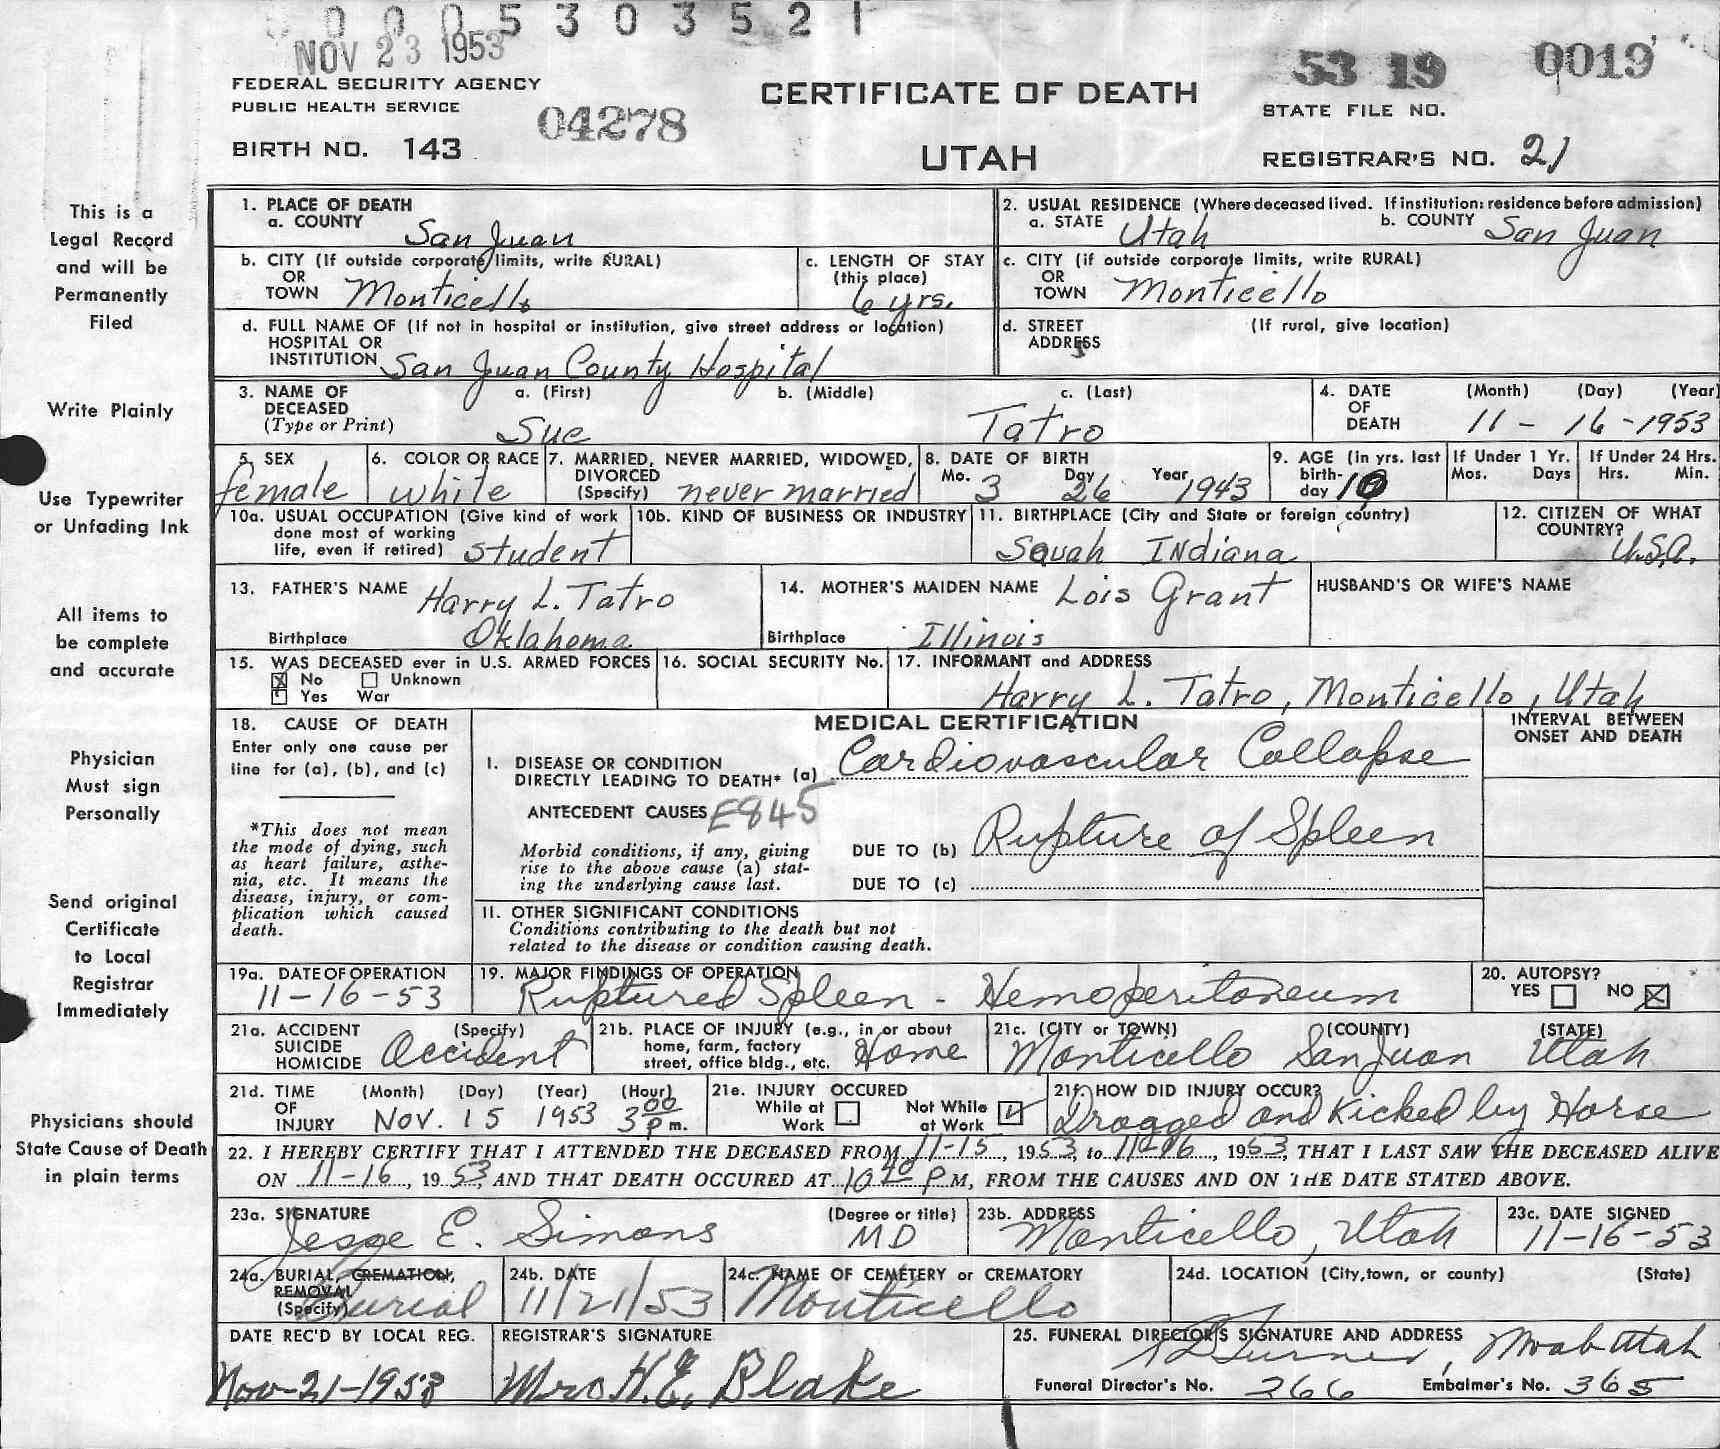 0 0 0 5 3 0 3 5 2 1
NOV 23 1953
FEDERAL SECURITY AGENCY
PUBLIC HEALTH SERVICE
BIRTH NO. 143
04278
CERTIFICATE OF DEATH
UTAH
53 19 0019
STATE FILE NO.
REGISTRAR'S NO. 21
This is a
Legal Record
and will be
Permanently
Filed
Write Plainly
Use Typewriter
or Unfading Ink
All items to
be complete
and accurate
Physician
Must sign
Personally
Send original
Certificate
to Local
Registrar
Immediately
Physicians should
State Cause of Death
in plain terms
1. PLACE OF DEATH
a. COUNTY San Juan
2. USUAL RESIDENCE (Where deceased lived. If institution: residence before admission)
a. STATE Utah b. COUNTY San Juan
b. CITY (If outside corporate limits, write RURAL)
OR
TOWN Monticello
c. LENGTH OF STAY
(this place)
6 yrs.
c. CITY (if outside corporate limits, write RURAL)
OR
TOWN Monticello
d. FULL NAME OF (If not in hospital or institution, give street address or location)
HOSPITAL OR
INSTITUTION San Juan County Hospital
d. STREET (If rural, give location)
ADDRESS
3. NAME OF a. (First) b. (Middle) c. (Last)
DECEASED
(Type or Print) Sue Tatro
4. DATE (Month) (Day) (Year)
OF
DEATH 11 - 16 - 1953
5. SEX
female
6. COLOR OR RACE
white
7. MARRIED, NEVER MARRIED, WIDOWED,
DIVORCED
(Specify) never married
8. DATE OF BIRTH
Mo. 3 Day 26 Year 1943
9. AGE (in yrs. last
birth-
day 10
If Under 1 Yr.
Mos. Days
If Under 24 Hrs.
Hrs. Min.
10a. USUAL OCCUPATION (Give kind of work
done most of working
life, even if retired) student
10b. KIND OF BUSINESS OR INDUSTRY
11. BIRTHPLACE (City and State or foreign country)
Indiana
12. CITIZEN OF WHAT
COUNTRY?
U.S.A.
13. FATHER'S NAME Harry L. Tatro
Birthplace Oklahoma
14. MOTHER'S MAIDEN NAME Lois Grant
Birthplace Illinois
HUSBAND'S OR WIFE'S NAME
15. WAS DECEASED ever in U.S. ARMED FORCES
No Unknown
Yes War
16. SOCIAL SECURITY No.
17. INFORMANT and ADDRESS
Harry L. Tatro, Monticello, Utah
18. CAUSE OF DEATH
Enter only one cause per
line for (a), (b), and (c)
*This does not mean
the mode of dying, such
as heart failure, asthe-
nia, etc. It means the
disease, injury, or com-
plication which caused
death.
MEDICAL CERTIFICATION
I. DISEASE OR CONDITION
DIRECTLY LEADING TO DEATH* (a) Cardiovascular Collapse
ANTECEDENT CAUSES E845
Morbid conditions, if any, giving
rise to the above cause (a) stat-
ing the underlying cause last.
DUE TO (b) Rupture of Spleen
DUE TO (c)
II. OTHER SIGNIFICANT CONDITIONS
Conditions contributing to the death but not
related to the disease or condition causing death.
INTERVAL BETWEEN
ONSET AND DEATH
19a. DATE OF OPERATION
11-16-53
19. MAJOR FINDINGS OF OPERATION
Ruptured Spleen - Hemoperitoneum
20. AUTOPSY?
YES NO
21a. ACCIDENT (Specify)
SUICIDE
HOMICIDE Accident
21b. PLACE OF INJURY (e.g., in or about
home, farm, factory
street, office bldg., etc. Home
21c. (CITY or TOWN) (COUNTY) (STATE)
Monticello San Juan Utah
21d. TIME (Month) (Day) (Year) (Hour)
OF
INJURY Nov. 15 1953 3 00 p m.
21e. INJURY OCCURED
While at Not While
Work at Work
21f. HOW DID INJURY OCCUR?
Dragged and Kicked by Horse
22. I HEREBY CERTIFY THAT I ATTENDED THE DECEASED FROM 11-15, 1953, to 11-16, 1953, THAT I LAST SAW THE DECEASED ALIVE
ON 11-16, 1953, AND THAT DEATH OCCURED AT 10 40 P M, FROM THE CAUSES AND ON THE DATE STATED ABOVE.
23a. SIGNATURE (Degree or title)
Jesse E. Simons MD
23b. ADDRESS
Monticello, Utah
23c. DATE SIGNED
11-16-53
24a. BURIAL, CREMATION,
REMOVAL
(Specify) Burial
24b. DATE
11/21/53
24c. NAME OF CEMETERY or CREMATORY
Monticello
24d. LOCATION (City, town, or county) (State)
DATE REC'D BY LOCAL REG.
Nov-21-1953
REGISTRAR'S SIGNATURE
Mrs H.E. Blake
25. FUNERAL DIRECTOR'S SIGNATURE AND ADDRESS
Turner, Moab Utah
Funeral Director's No. 266 Embalmer's No. 365